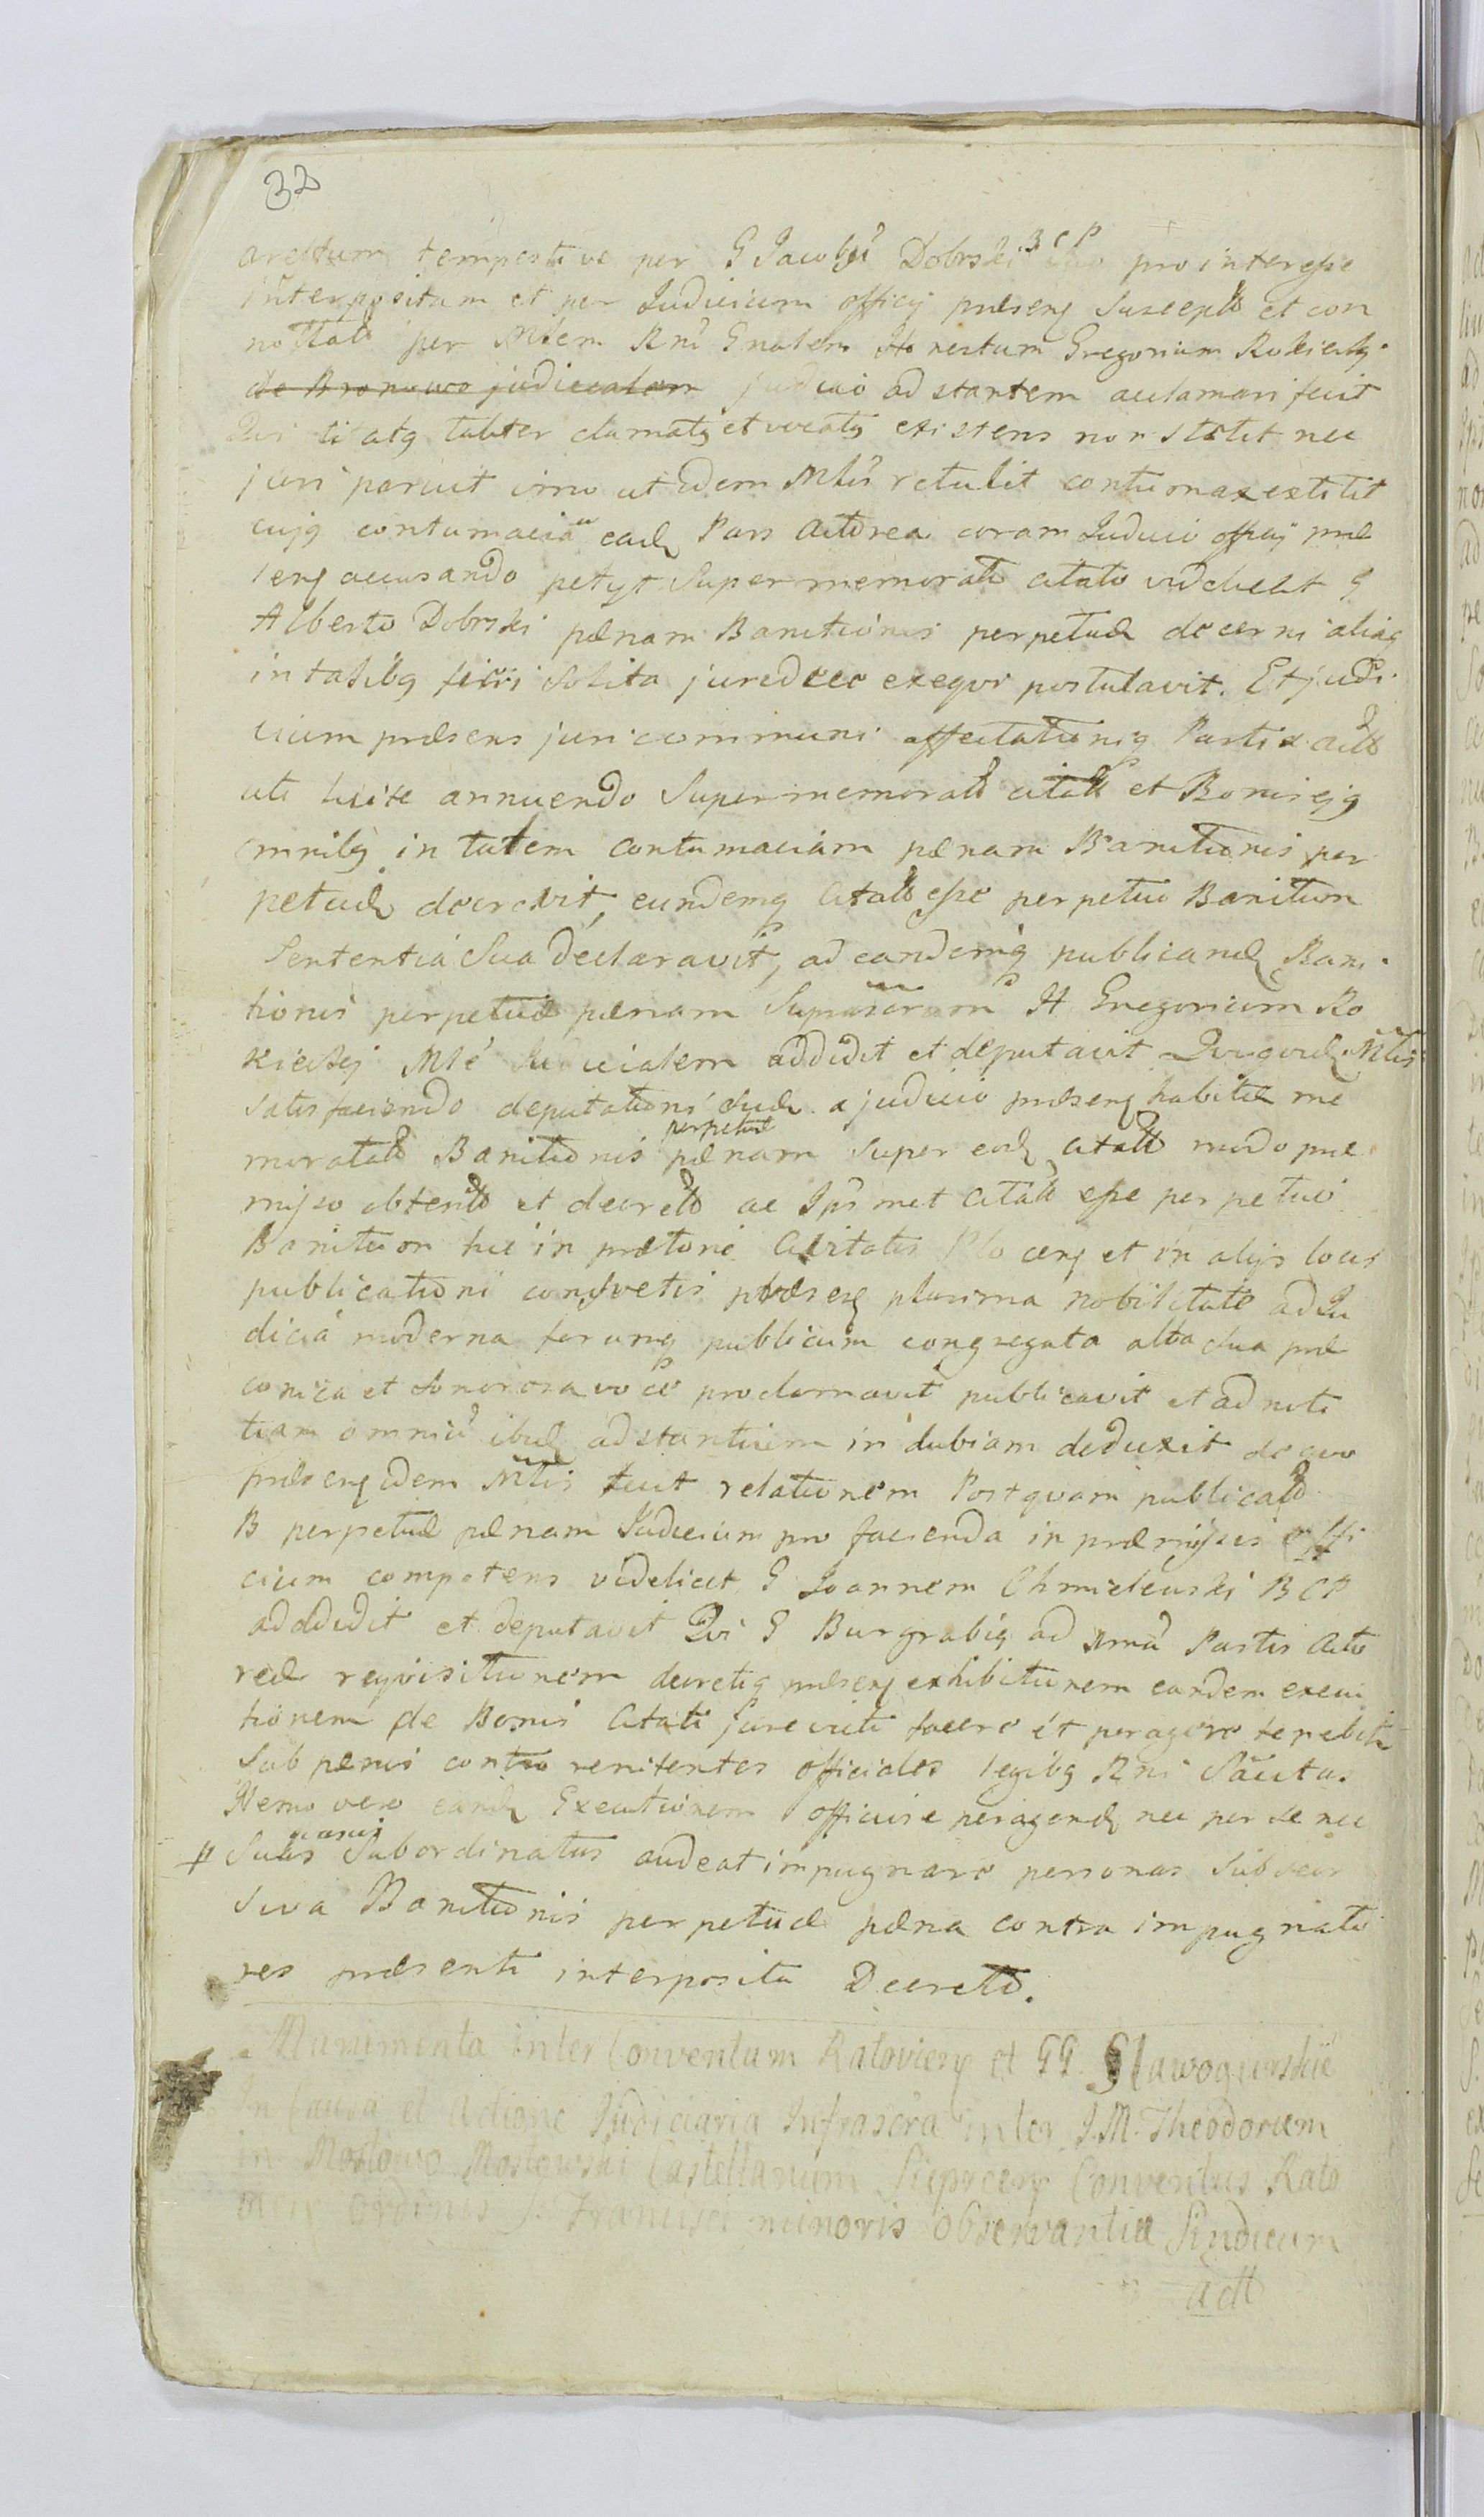 32
arestum tempestive per G Jacobũ Dobrski 3 c p pro interesse
interpositum et per Judicium officij præsenq susceptũ et con
nottatũ per Mlem Rñi Gnalem Honestum Gregorium Rokicky
de Bronowo judicialem judicio ad stantem aclamari fecit
Qui citatq taliter clamatq et vocatq existens non stetit nec
juri paruit imo ut idem Mlis retulit contumax extitit
cujq contumaciam eadq Pars Actorea coram Judicio officij præ
senq accusando petyt Supermemorato citato videlicet G
Alberto Dobrski pænam Banitionis perpetuæ decerni aliaq
in talibq fieri solita juredice exequi postulavit. Et judi
cium præsens juri communi affectationiq Partis Act
uti licite annuendo Supermemoratũ citatũ et Bonis ejq
omnibq in talem contumaciam pænam Banitionis per
petuæ decrevit, eundemq Citatũ esse perpetuo Banitum
Sententia Sua declaravit, ad eandemq publicandq Bani
tionis perpetuæ pænam Suprascrm H Gregorium Ro
kicky Mlé Judicialem addidit et deputavit Qui quidq Mlis
satisfaciendo deputationi suæ a judicio præsenq habitæ me
moratatũ Banitionis perpetuæ pænam super eodq citatũ modo præ
misso obtentũ et decretũ ac Ips met Citatũ esse perpetuo
Banitum hic in prætorio Civitatis Plocenq et in alijs locis
publicationi consvetis præsenq plurima nobilitate ad Ju
dicia moderna forumq publicum congregata alta sua præ
conica et sonorosa voce proclamavit publicavit et ad noti
tiam omniũ ibidq adstantium indubiam deduxit de quo
præsenq idem Mlis fecit relationem Postquam publicatũ
B perpetuæ pænam Judicium pro facienda in præmissis offi
cium competens videlicet G Joannem Chmielewski B C P
addidit et deputavit Qui G Burgrabiq ad primã Partis Acto
reæ requisitionem decretiq præsenq exhibitionem eandem execu
tionem de Bonis Citati jure victi facere et peragere tenebitr
sub pænis contra renitentes officiales legibq Rni Sãcitas
Nemo vero eandq Executionem officiose peragendq nec per se nec
# Suas quasvis Subordinatas audeat impugnare personas sub seor
siva Banitionis perpetuæ pæna contra impugnato
res præsenti interposita Decreto.
Munimenta inter Conventum Ratovienq et GG Slawogurskie
In Causa et actione Judiciaria Infrascra inter J.M. Theodorum
in Mostowo Mostowski Castellanum Sieprcenq Conventus Rato
Ordinis S. Francisci minoris observantiæ Sindicum
actt